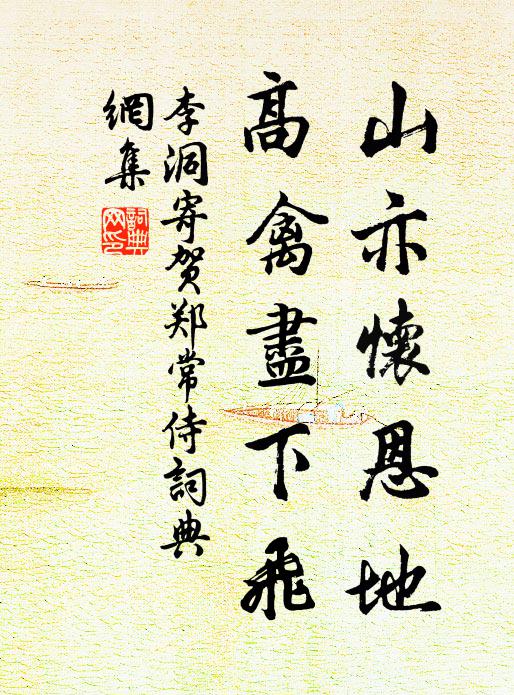 山亦懷恩地
高禽盡下飛
李洞寄贺郑常侍詞典
網集
詞典网印